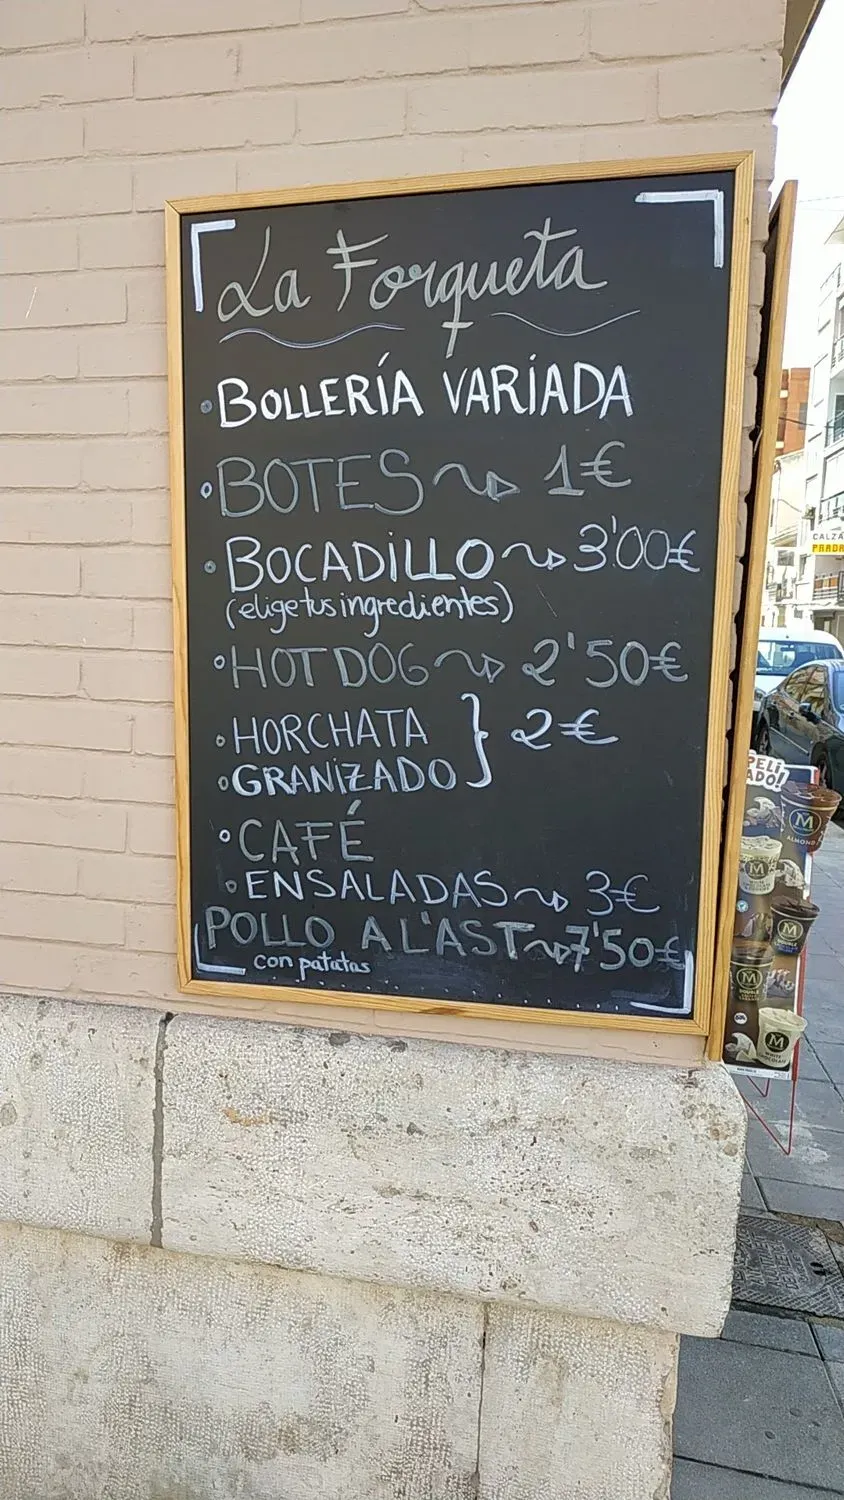 La Forqueta
BOLLERÍA VARIADA
BOTES 1€
BOCADILLO 3'00€
(elige tus ingredientes)
HOT DOG 2'50€
HORCHATA
GRANIZADO } 2€
CAFÉ
ENSALADAS 3€
POLLO A L'AST 7'50€
con patatas
CALZA
PELI
ADO!
M
ALMOND
M
M
DOUBLE
M
DOUBLE
M
WHITE
CHOCOLATE